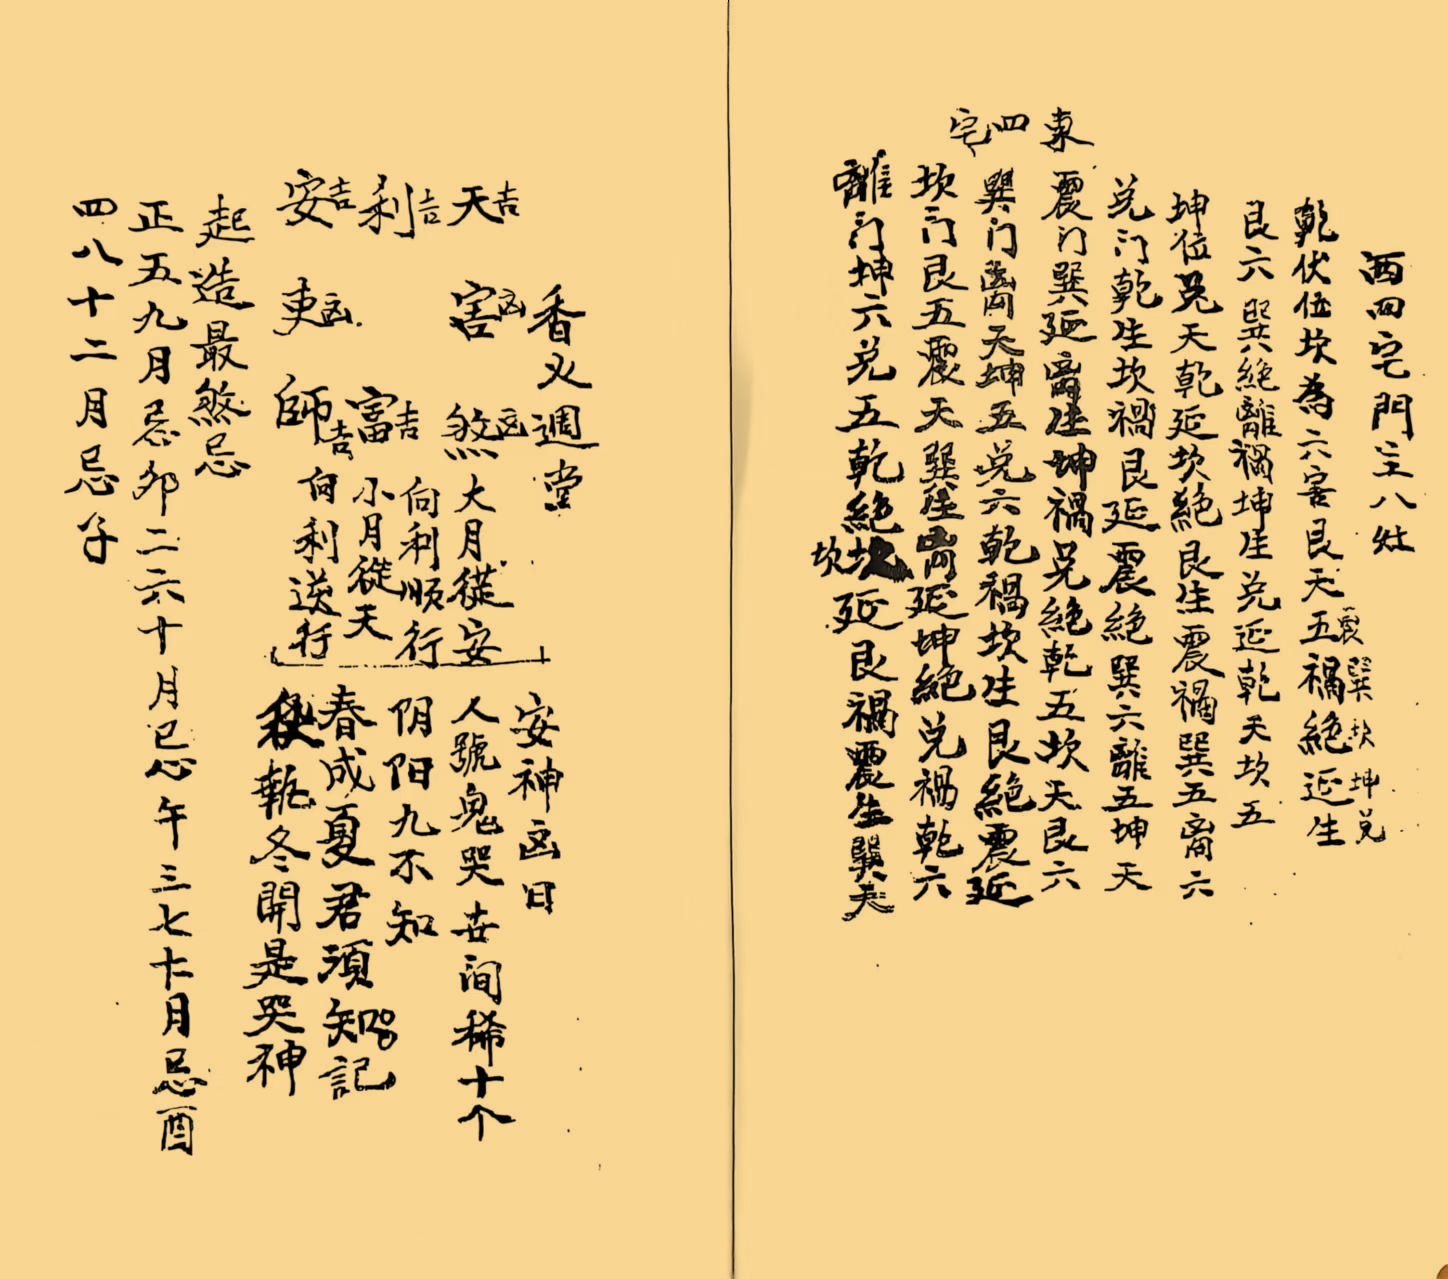 西四宅門主八灶
乾伏位坎為六害艮天五禍絕延生
震巽坎坤兑
艮六巽絕離禍坤生兑延乾天坎五
坤位兑天乾延坎絕艮生震禍巽五离六
兑门乾生坎禍艮延震絕巽六離五坤天
東四宅
震门巽延离生坤禍兑絕乾五坎天艮六
巽门离天坤五兑六乾禍坎生艮絕震延
坎门艮五震天巽生离延坤絕兑禍乾六
離门坤六兑五乾絕坎延艮禍震生巽天
坎
香火週堂
天吉 害凶 煞凶
利吉 富吉
安吉 吏凶 師吉
大月從安
向利順行
小月從天
向利送行
安神凶日
人號鬼哭世间稀十个
阴阳九不知
春成夏君須知記
秋執冬開是哭神
起造最煞忌
正五九月忌卯二六十月忌午三七十一月忌酉
四八十二月忌子